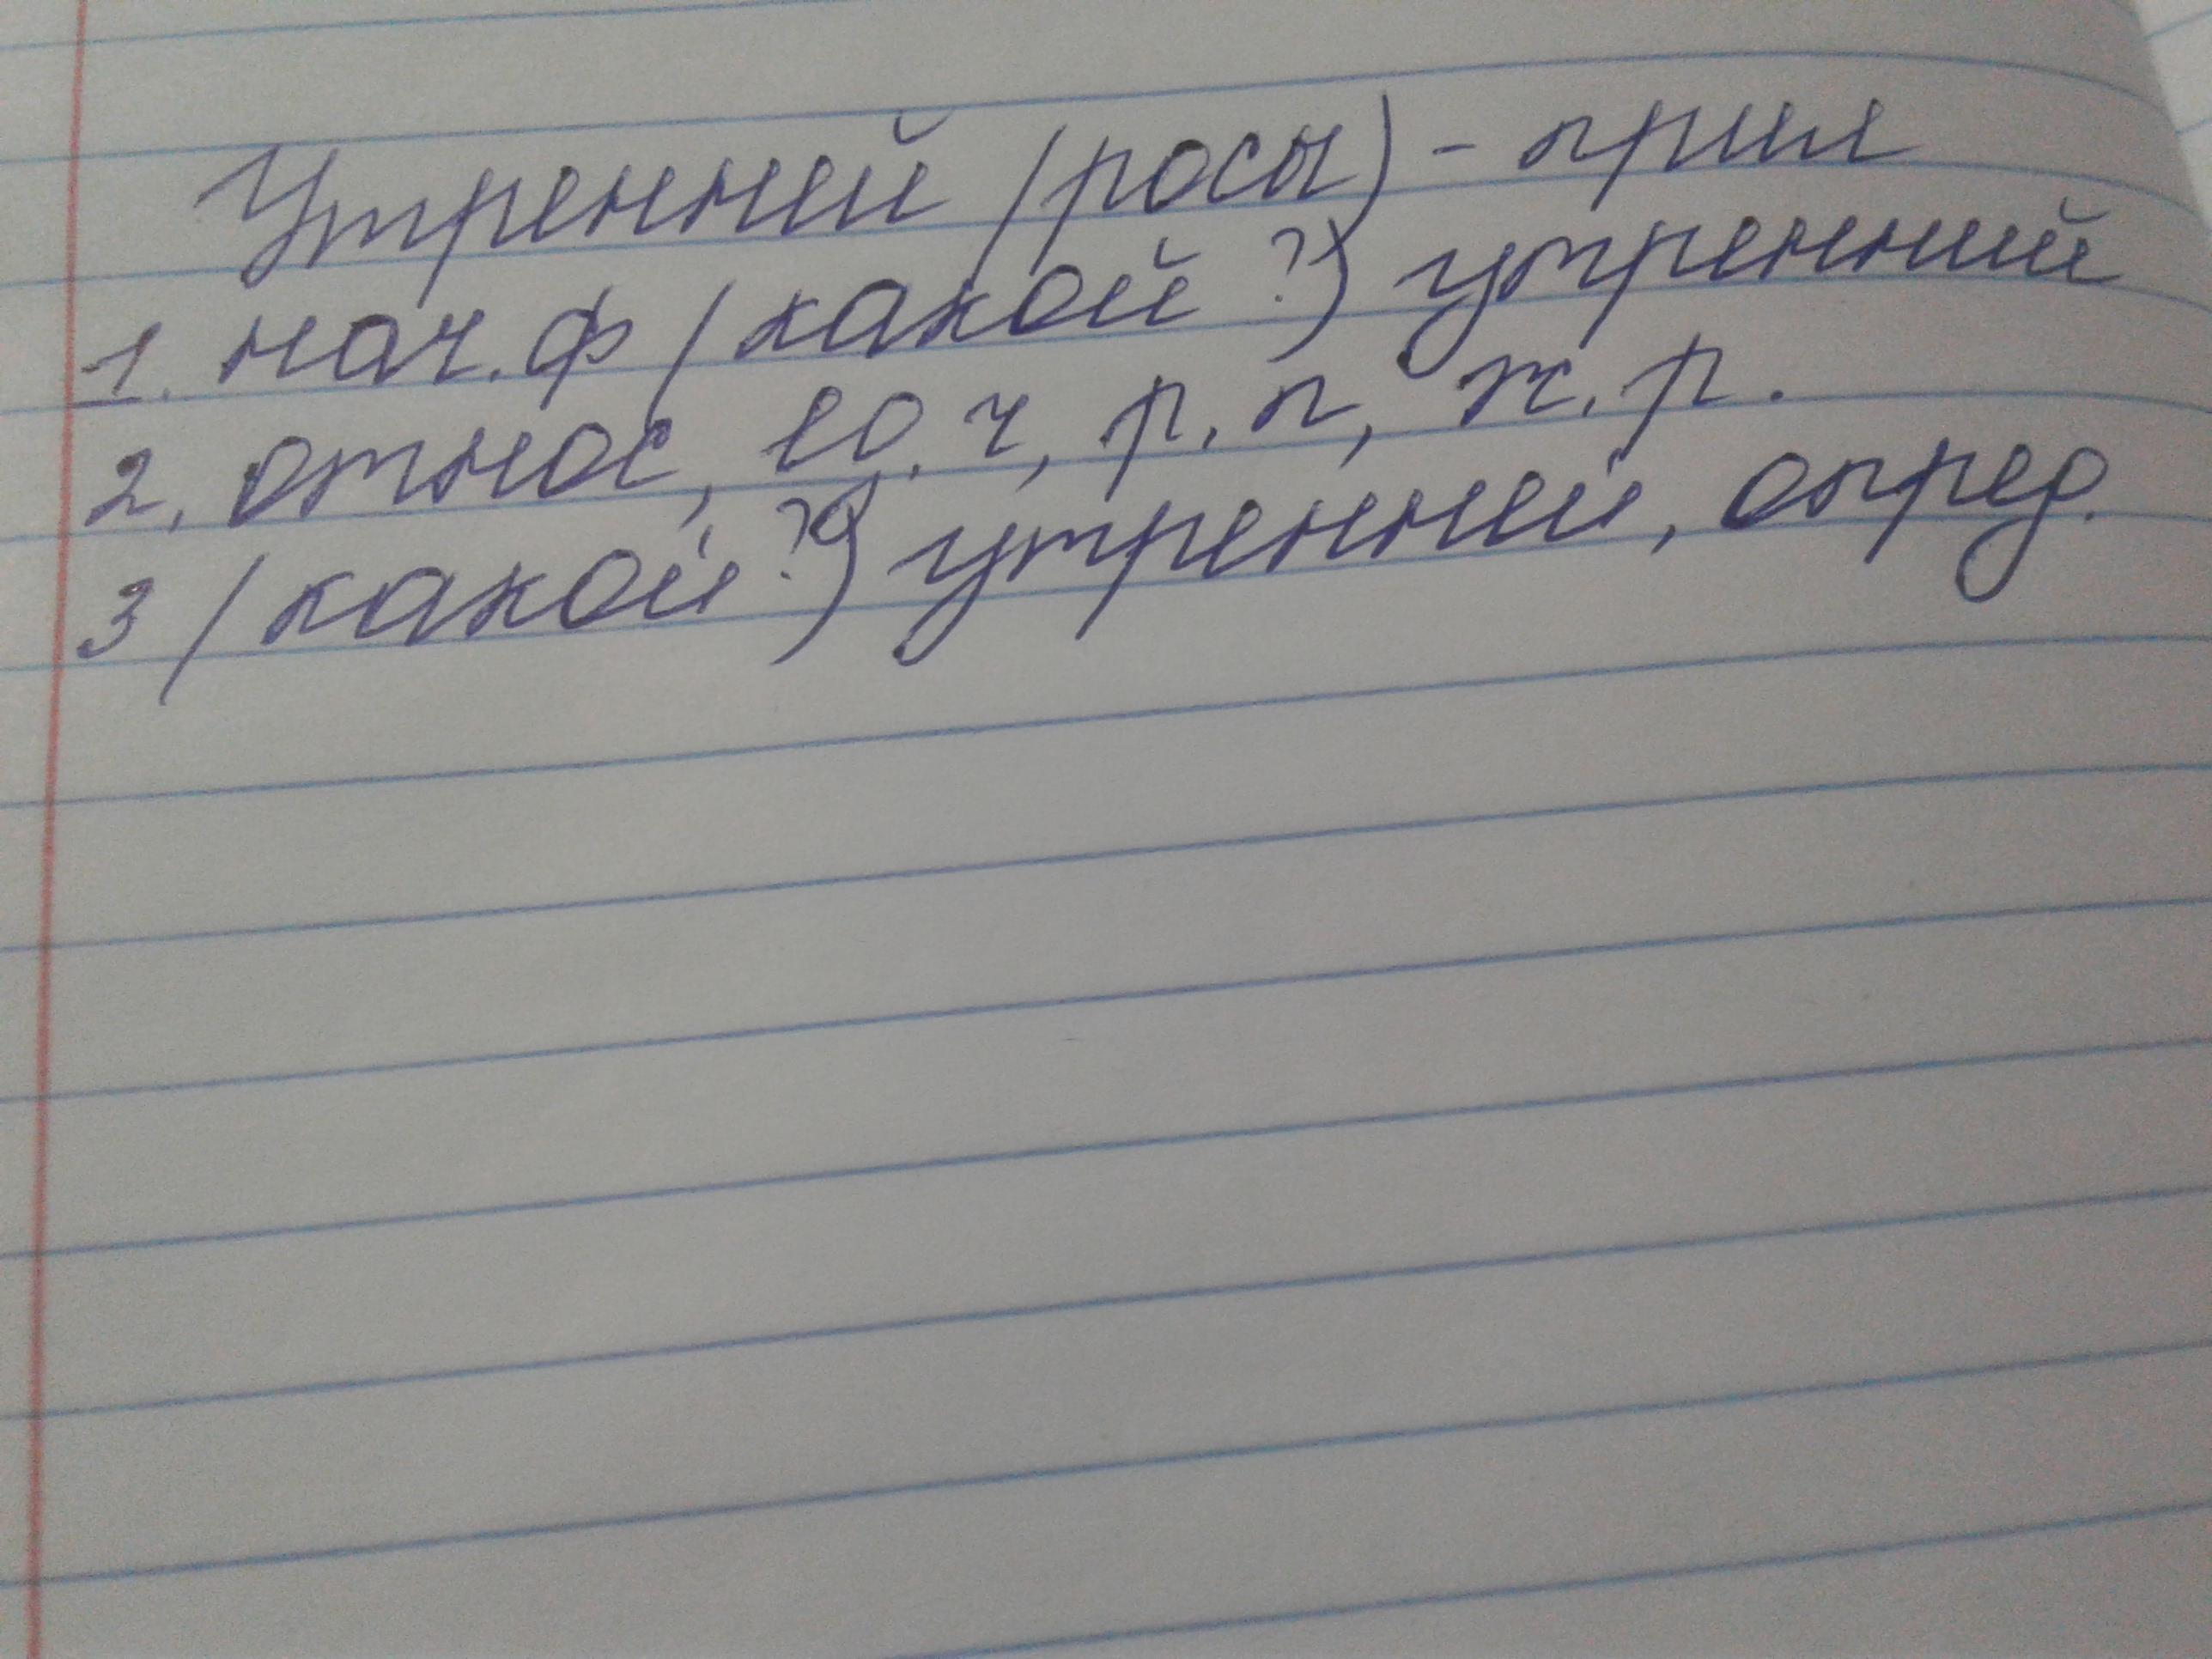 Утренней (росы) - прил
1. нач. ф (какой?) утренний
2. относ, ед. ч, р. п, ж. р.
3 (какой?) утренней, опред.